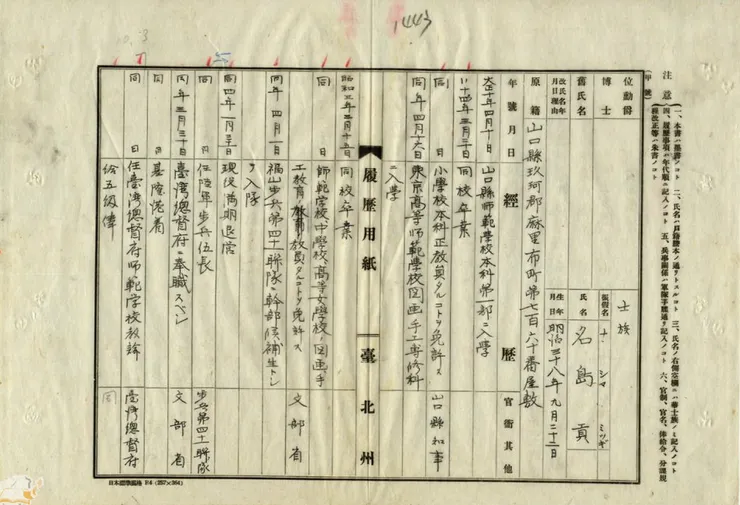 1443
注意
一、本書ハ墨書ノコト 二、氏名ハ戸籍謄本ノ通リトスルコト 三、氏名ノ右側空欄ニハ華士族ノミ記入ノコト
四、履歴事項ハ年代順ニ記入ノコト 五、兵事關係ハ軍隊手牒通リ記入ノコト 六、官制、官名、俸給令、分課規
程改正等ハ朱書ノコト
(甲號)
位勳爵
士族
博士
振假名
ナ シマ ミツギ
舊氏名
氏名
名島貢
改氏名年月日理由
生年月日
明治三十八年九月二十二日
原籍
山口縣玖珂郡麻里布町第七百六十番屋敷
年號月日
經歷
官衙其他
大正十年四月十日
山口縣師範學校本科第一部ニ入學
十四年三月二十日
同校卒業
同日
小學校本科正教員タルコトヲ免許ス
山口縣知事
同年四月十六日
東京高等師範學校図画手工専修科
ニ入學
履歷用紙
臺北州
昭和三年三月十五日
同校卒業
同日
師範学校中学校、高等女学校ノ図画、手
工教育ノ教員タルコトヲ免許ス
文部省
同年四月一日
福山步兵第四十一聯隊ニ幹部候補生トシ
テ入隊
同四年一月三十一日
現役満期退営
同日
任陸軍步兵伍長
步兵第四十一聯隊
同年三月三十日
臺灣總督府ニ奉職スベシ
文部省
同日
任臺灣總督府師範学校教諭
臺灣總督府
給五級俸
同
日本標準規格 B4 (257×364)